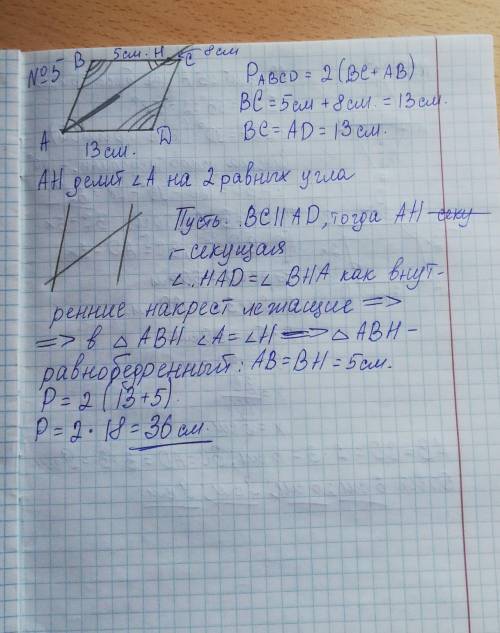 №5
B 5см. H C 8см
A 13см. D
PABCD = 2(BC+AB)
BC=5см+8см=13см.
BC=AD=13см.
AH делит ∠A на 2 равных угла
Пусть BC||AD, тогда AH секу
- секущая
∠HAD=∠BHA как внут-
ренние накрест лежащие =>
=> в △ABH ∠A=∠H => △ABH -
равнобедренный: AB=BH=5см.
P=2(13+5)
P=2·18=36см.